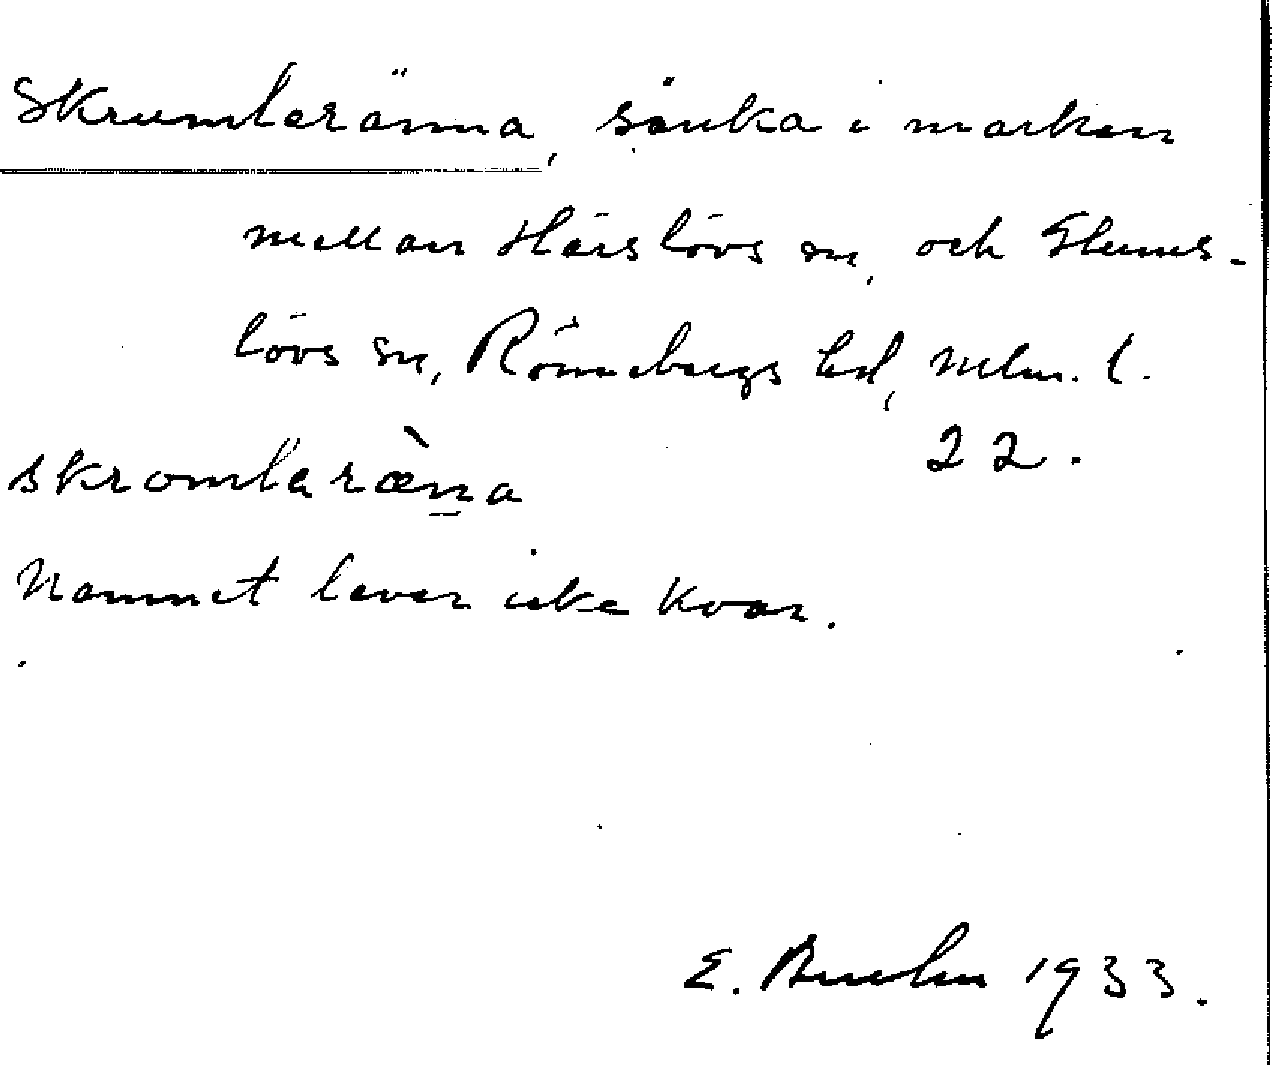 Skrumleränna, sänka i marken
mellan Härslövs sn, och Glums-
lövs sn, Rönnebergs hd, Mlm. l.
22.
skromlaræ̀na
Namnet lever icke kvar.
E. 1933.